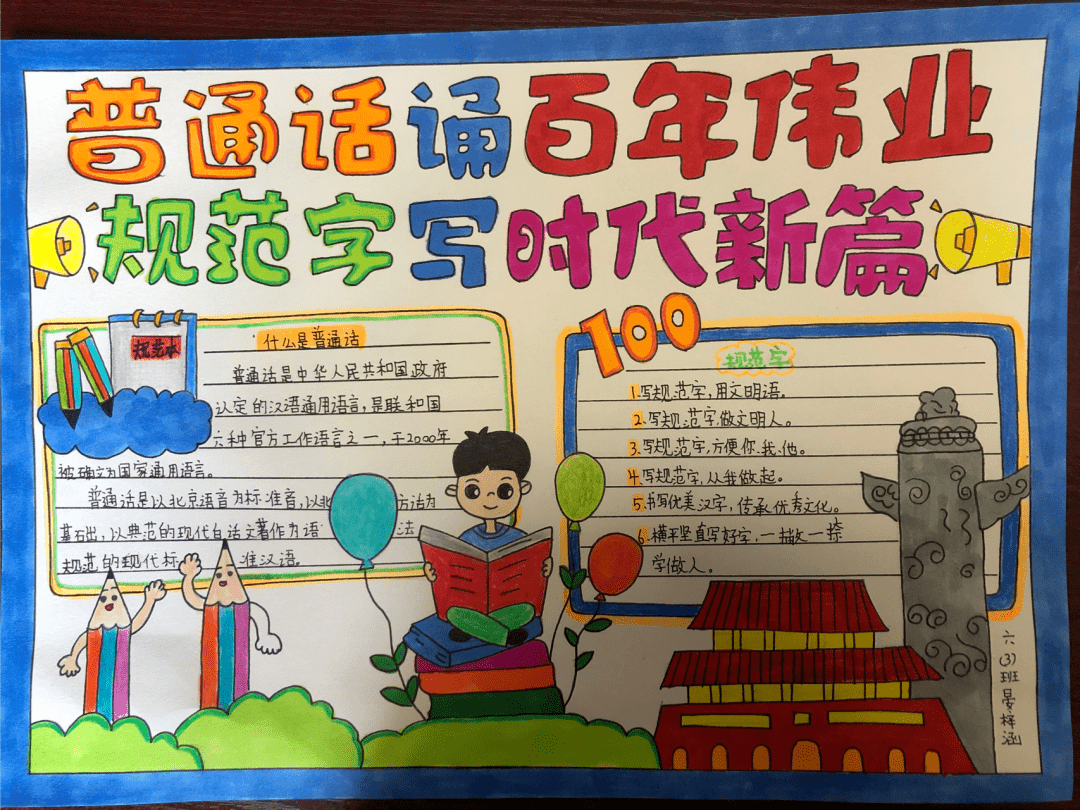 普通话诵百年伟业
规范字写时代新篇
规范本
什么是普通话
普通话是中华人民共和国政府
认定的汉语通用语言，是联和国
六种官方工作语言之一，于2000年
被确立为国家通用语言。
普通话是以北京语音为标准音，以北 方话为
基础出，以典范的现代白话文著作为语 法
规范的现代标 准汉语。
100
规范字
1.写规范字，用文明语。
2.写规范字，做文明人。
3.写规范字，方便你.我.他。
4.写规范字，从我做起。
5.书写优美汉字，传承优秀文化。
6.横平竖直写好字，一撇一捺
学做人。
六(3)班晏梓涵